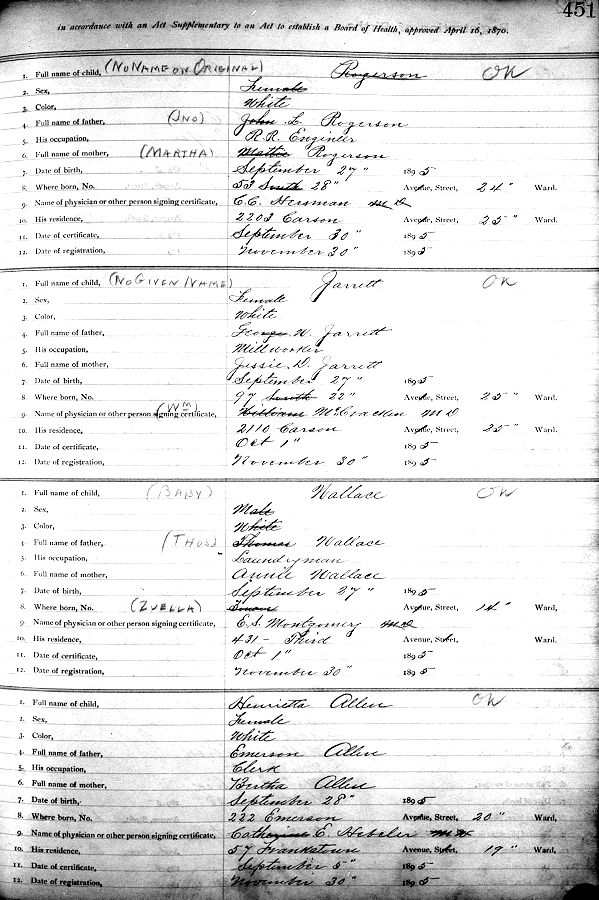 451
in accordance with an Act Supplementary to an Act to establish a Board of Health, approved April 16, 1870.
1. Full name of child, (NO NAME ON ORIGINAL) Rogerson OK
2. Sex, Female
3. Color, White
4. Full name of father, (JNO) John L. Rogerson
5. His occupation, R.R. Engineer
6. Full name of mother, (MARTHA) Mattie Rogerson
7. Date of birth, September 27" 1895
8. Where born, No. 53 South 28" Avenue, Street, 24" Ward.
9. Name of physician or other person signing certificate, C.C. Hersman MD
10. His residence, 2203 Carson Avenue, Street, 25" Ward.
11. Date of certificate, September 30" 1895
12. Date of registration, November 30" 1895
1. Full name of child, (NO GIVEN NAME) Jarrett OK
2. Sex, Female
3. Color, White
4. Full name of father, George W. Jarrett
5. His occupation, Millworker
6. Full name of mother, Jessie D. Jarrett
7. Date of birth, September 27" 1895
8. Where born, No. 97 South 22" Avenue, Street, 25" Ward.
9. Name of physician or other person signing certificate, (WM) William McCracken MD
10. His residence, 2110 Carson Avenue, Street, 25" Ward.
11. Date of certificate, Oct 1" 1895
12. Date of registration, November 30" 1895
1. Full name of child, (BABY) Wallace OK
2. Sex, Male
3. Color, White
4. Full name of father, (THOS) Thomas Wallace
5. His occupation, Laundryman
6. Full name of mother, Annie Wallace
7. Date of birth, September 27" 1895
8. Where born, No. (ZUELLA) Avenue, Street, 14" Ward,
9. Name of physician or other person signing certificate, E.S. Montgomery MD
10. His residence, 431 - Third Avenue, Street, Ward.
11. Date of certificate, Oct 1" 1895
12. Date of registration, November 30" 1895
1. Full name of child, Henrietta Allen OK
2. Sex, Female
3. Color, White
4. Full name of father, Emerson Allen
5. His occupation, Clerk
6. Full name of mother, Bertha Allen
7. Date of birth, September 28" 1895
8. Where born, No. 222 Emerson Avenue, Street, 20" Ward.
9. Name of physician or other person signing certificate, Catharine E. Hebsler
10. His residence, 57 Frankstown Avenue, Street, 19" Ward,
11. Date of certificate, September 5" 1895
12. Date of registration, November 30" 1895